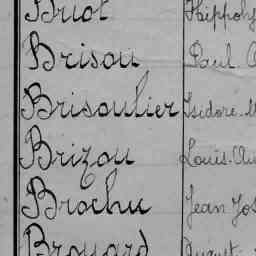 Briot Hippoly
Brisou Paul
Brisoulier Isidore
Brizou Louis
Brochu Jean Jos
Brouard August